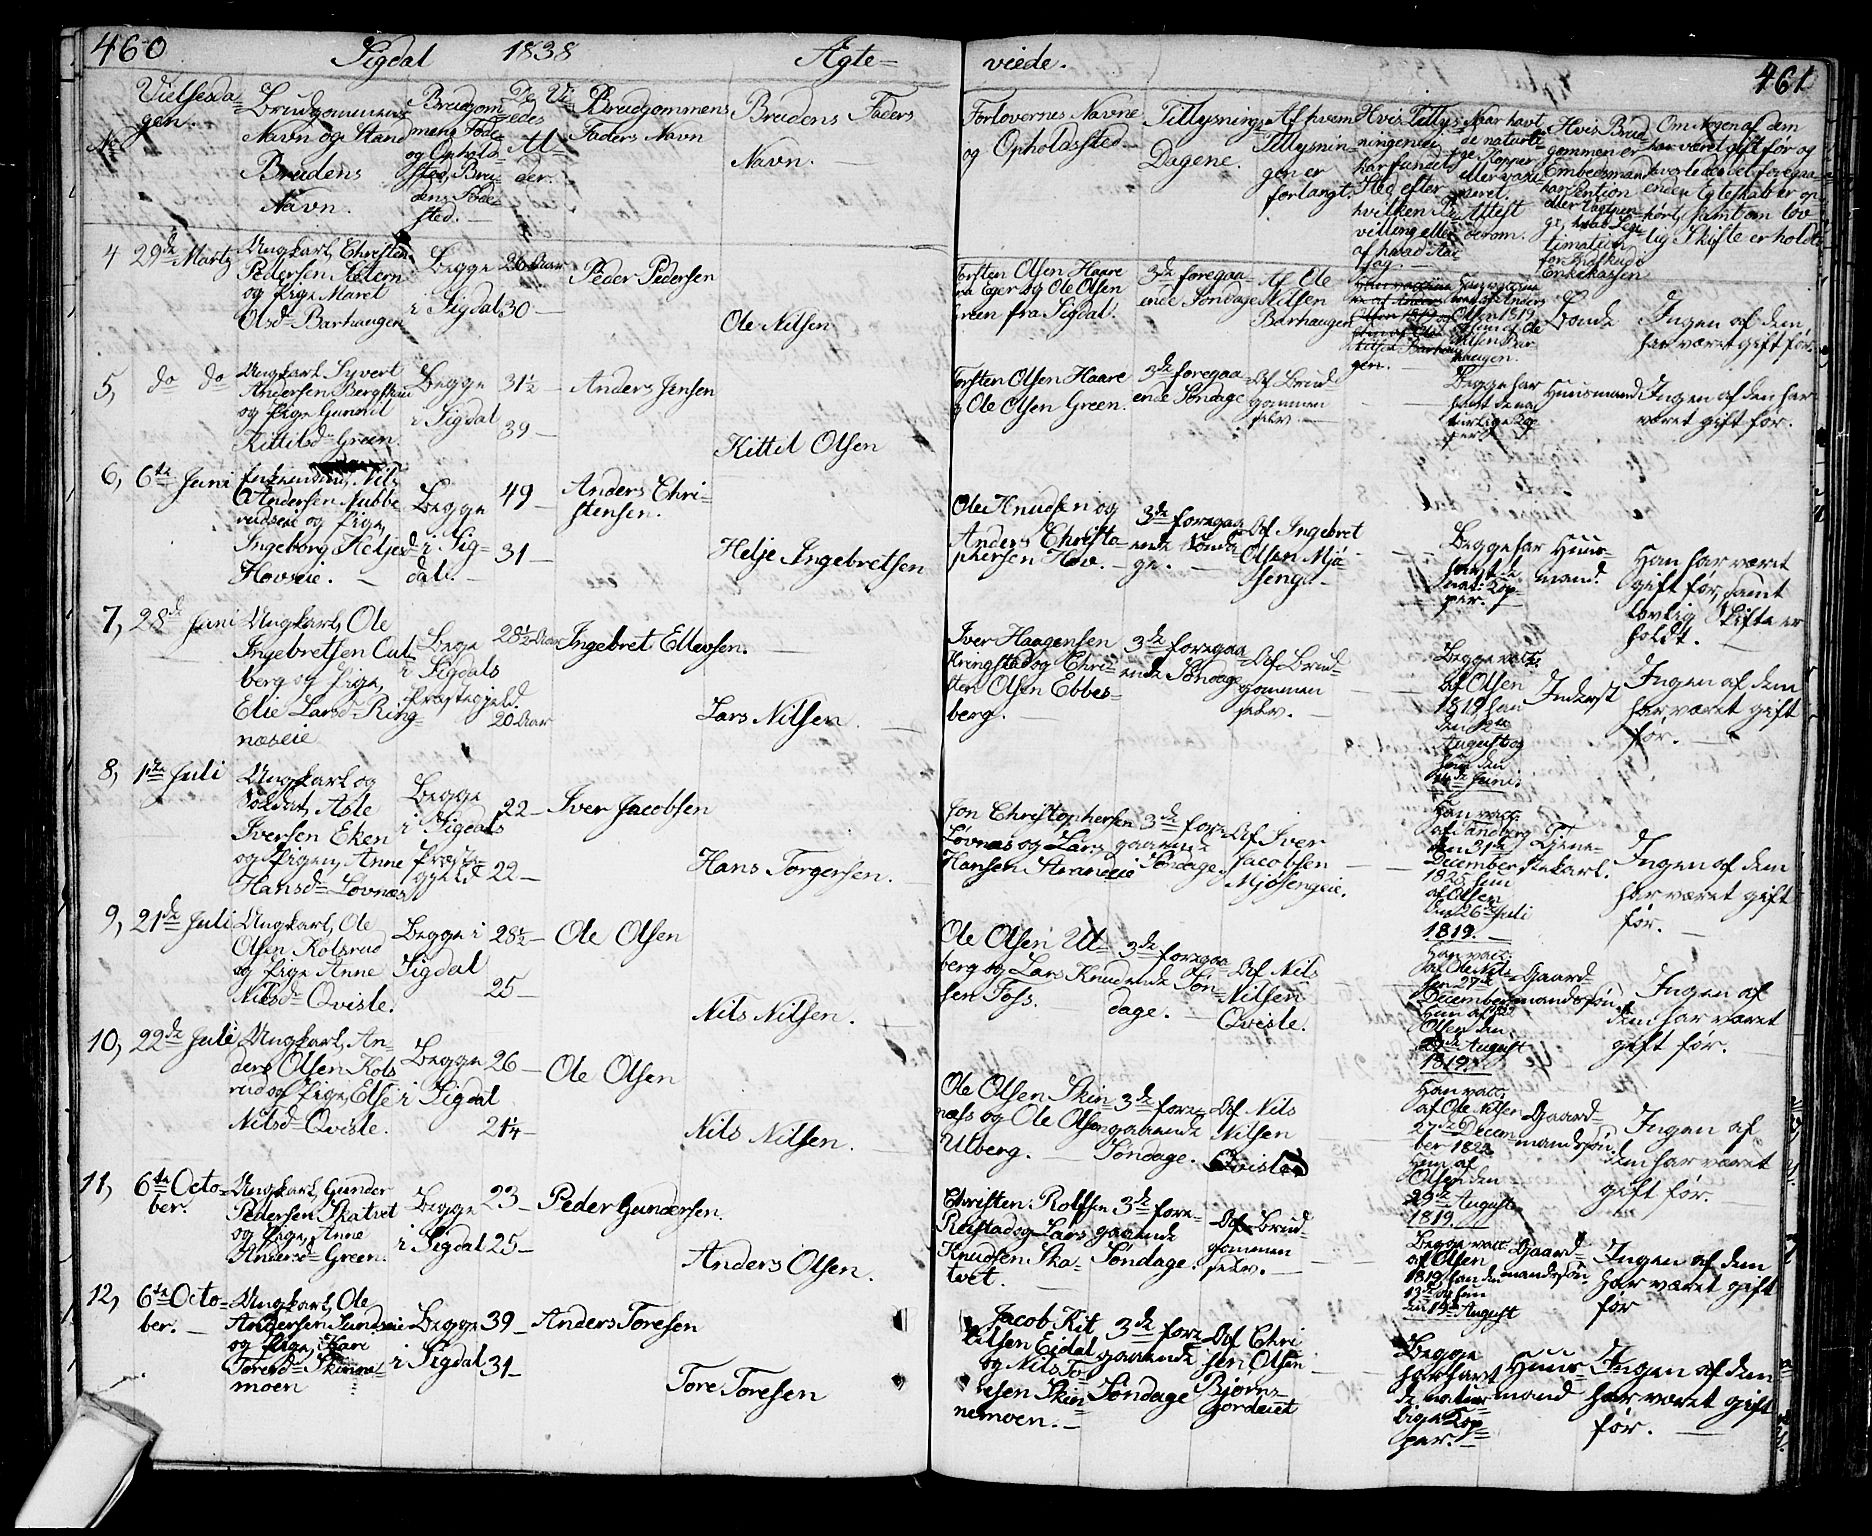 460
Sigdal 1838 Ægte-
viede. 461
No
Vielsesda-
gen.
Brudgommens
Navn og Stand
Brudens
Navn.
Brudgom-
mens Føde
og Opholds-
sted, Bru-
dens Føde-
sted.
De Vi-
edes
Al-
der.
Brudgommens
Faders Navn
Brudens Faders
Navn.
Forlovernes Navne
og Opholdssted.
Tillysnings
Dagene.
Af hvem
Tillysnin-
gen er
forlangt.
Hvis Tillys-
ningen ei
har fundet
Sted efter
hvilken Be-
villing eller
af hvad Aar-
sag.
Naar havt
de naturli-
ge Kopper
eller vaxi-
neret.
Attest
derom.
Hvis Brud-
gommen er
Embedsmand
har Pention
eller Vagtpen-
ge, hvad Legi-
timation
for Indskud i
Enkekassen
Om nogen af dem
har været gift før og
hvorledes det foregaa-
ende Egteskab er op-
hørt, samt om lov-
lig Skifte er holdt
4 29de Martz
Ungkarl, Christen
Pedersen
og Pige Maret
Olsd. Barhaugen
Begge
i Sigdal
26 Aar
30
Peder Pedersen
Ole Nilsen
Torsten Olsen Haare
fra Eger og Ole Olsen
Green fra Sigdal.
3de foregaa-
ende Søndage
Af Ole
Nilsen
Barhaugen
Han vaccine-
ret af Anders
Olsen 1819
Hun af Ole
Nilsen Bar-
haugen.
Bonde
Ingen af dem
har været gift før.
5, do do
Ungkarl Syvert
Andersen
og Pige Gunnil
Kittilsd. Green.
Begge
i Sigdal
31½
39
Anders Jensen
Kittil Olsen
Torsten Olsen Haare
og Ole Olsen Green.
3de foregaa-
ende Søndage
Af Brud-
gommen
selv.
Begge har
havt de na-
turlige Kop-
per
Huusmand
Ingen af dem har
været gift før.
6, 6te Juni
Enkemand, Nils
Andersen Nubbe-
rudseie og Pige,
Ingeborg Heljesd.
Hovseie.
Begge
i Sig-
dal.
49
31
Anders Chri-
stensen.
Helje Ingebretsen
Ole Knudsen og
Anders Christo-
phersen Hov.
3de foregaa-
ende Sønda-
ge.
Af Ingebret
Olsen Mjø-
seng.
Begge har
havt de
nat: Kop-
per.
Huus-
mand.
Han har været
gift før, samt
lovlig Skifte er
holdt.
7, 28de Juni
Ungkarl, Ole
Ingebretsen
berg og Pige,
Elie Larsd. Ring-
næseie
Begge
i Sigdals
Præstegjeld.
28½ Aar
20 Aar
Ingebret Ellevsen.
Lars Nilsen
Iver Haagensen
Kringstad og Chri-
sten Olsen Ebbes-
berg.
3de foregaa-
ende Søndage
Af Brud-
gommen
selv.
Begge vacc.
af Olsen
1819 han
den
August og
hun den
Juni.
Inderst
Ingen af dem
har været gift
før.
8, 1ste Juli
Ungkarl og
Soldat, Asle
Iversen Eken
og Pigen, Anne
Hansd. Løvnæs
Begge
i Sigdals
Præste-
gjeld
22
22
Iver Jacobsen
Hans Torgersen.
Jon Christophersen
Løvnæs og Lars
Hansen
3de fore-
gaaende
Søndage.
Af Iver
Jacobsen
Mjøsengeie.
Han vacc.
af Tandberg
den 31te
December
1825, hun
af Olsen
den 26de Juli
1819.
Tjene-
stekarl.
Ingen af dem
har været gift
før.
9, 21de Juli
Ungkarl, Ole
Olsen Kolsrud
og Pige Anne
Nilsd. Qvisle.
Begge i
Sigdal
28½
25
Ole Olsen
Nils Nilsen.
Ole Olsen Ul-
berg og Lars Knud-
sen Foss.
3de foregaa-
ende Søn-
dage.
Af Nils
Nilsen
Qvisle.
Han vacc.
af Ole Nil-
sen 27de
December
Hun af
Olsen den
August
1819.
Gaard-
mandssøn
Ingen af
dem har været
gift før.
10, 22de Juli,
Ungkarl, An-
ders Olsen Kols-
rud og Pige, Else
Nilsd. Qvisle.
Begge
i Sigdal
26
21¼
Ole Olsen
Nils Nilsen.
Ole Olsen Skin-
næss og Ole Olsen
Ulberg.
3de fore-
gaaende
Søndage.
Af Nils
Nilsen
Qvisle
Han vacc.
af Ole Nilsen
27de Decem-
ber 1822
Hun af
Olsen den
29de August
1819.
Gaard-
mandssøn.
Ingen af
dem har været
gift før.
11, 6te Octo-
ber.
Ungkarl, Gunder
Pedersen Skatvet
og Pige, Anne
Andersd. Green.
Begge
i Sigdal
23
25
Peder Gundersen.
Anders Olsen.
Christen Rolfsen
Reistad og Lars
Knudsen Ska-
tvet.
3de fore-
gaaende
Søndage.
Af Brud-
gommen
selv.
Begge vacc.
af Olsen
1819 han den
13de og hun
den 14de August
Gaard-
mandssøn.
Ingen af dem
har været gift
før
12, 6te Octo-
ber.
Ungkarl, Ole
Andersen Lundseie
og Pige, Kari
Toresd. Skinne-
moen
Begge
i Sigdal
39
31
Anders Toresen
Tore Toresen
Jacob Kit-
tilsen Eidal
og Nils To-
resen Skin-
nemoen.
3de fore-
gaaende
Søndage
Af Chri-
sten Olsen
Bjørns-
gordeiet
Begge
har havt
de natur-
lige Kop-
per.
Huus-
mand
Ingen af dem
har været gift
før.